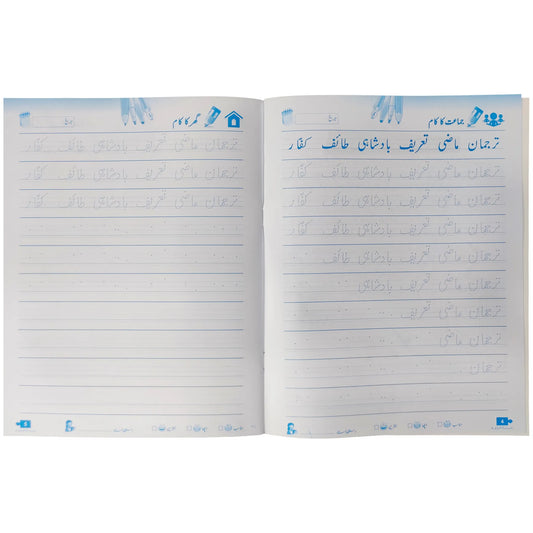 جماعت کا کام
ترجمان ماضی تعریف بادشاہی طائف کفّار
ترجمان ماضی تعریف بادشاہی طائف کفّار
ترجمان ماضی تعریف بادشاہی طائف کفّار
ترجمان ماضی تعریف بادشاہی طائف کفّار
ترجمان ماضی تعریف بادشاہی طائف
ترجمان ماضی تعریف بادشاہی
ترجمان ماضی تعریف
ترجمان ماضی
ترجمان
4
گھر کا کام
ترجمان ماضی تعریف بادشاہی طائف کفّار
ترجمان ماضی تعریف بادشاہی طائف کفّار
ترجمان ماضی تعریف بادشاہی طائف کفّار